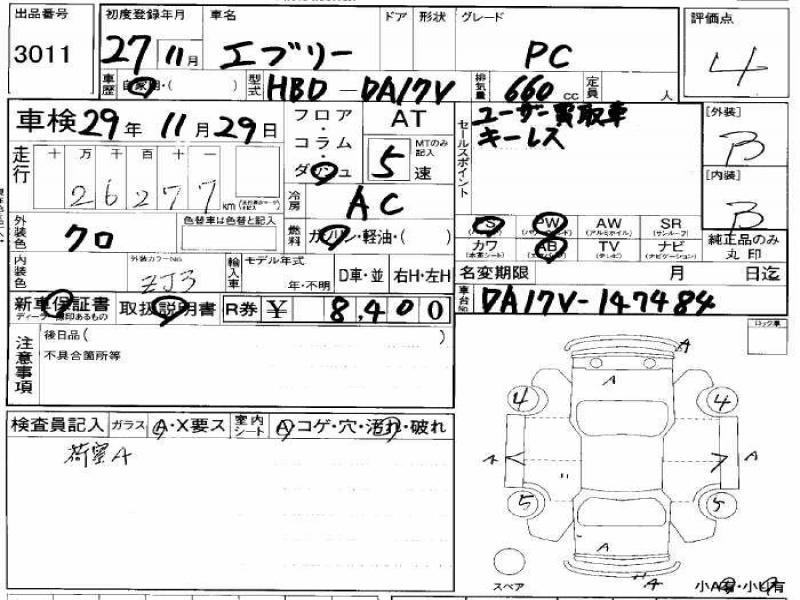 出品番号 3011
初度登録年月 27年 11月
車名 エブリー
ドア 形状 グレード PC
評価点 4
車歴 自家用・( )
型式 HBD-DA17V
排気量 660 cc
定員 人
車検 29年 11月 29日
フロア・コラム・ダッシュ
AT
MTのみ記入
5速
セールスポイント
ユーザー買取車
キーレス
[外装] B
[内装] B
走行 十 万 千 百 十 一
26277 km
冷房 AC
燃料 ガソリン・軽油・( )
外装色 クロ
色替車は色替と記入
PS PW AW SR
(パワーウィンドウ) (アルミホイル) (サンルーフ)
カワ AB TV ナビ
(本革シート) (エアバッグ) (テレビ) (ナビゲーション)
純正品のみ丸印
内装色
外装カラーNo. ZJ3
輸入車 モデル年式 年・不明
D車・並 右H・左H
名変期限 月 日迄
新車保証書 取扱説明書 R券 ¥ 8,400
車台No. DA17V-147484
ロック車
注意事項
後日品( )
不具合箇所等
検査員記入 ガラス A・X要ス 室内シート A コゲ・穴・汚れ・破れ
荷室A
A
A
4 4
A A
5 5
A
A
スペア
小A有・小U有